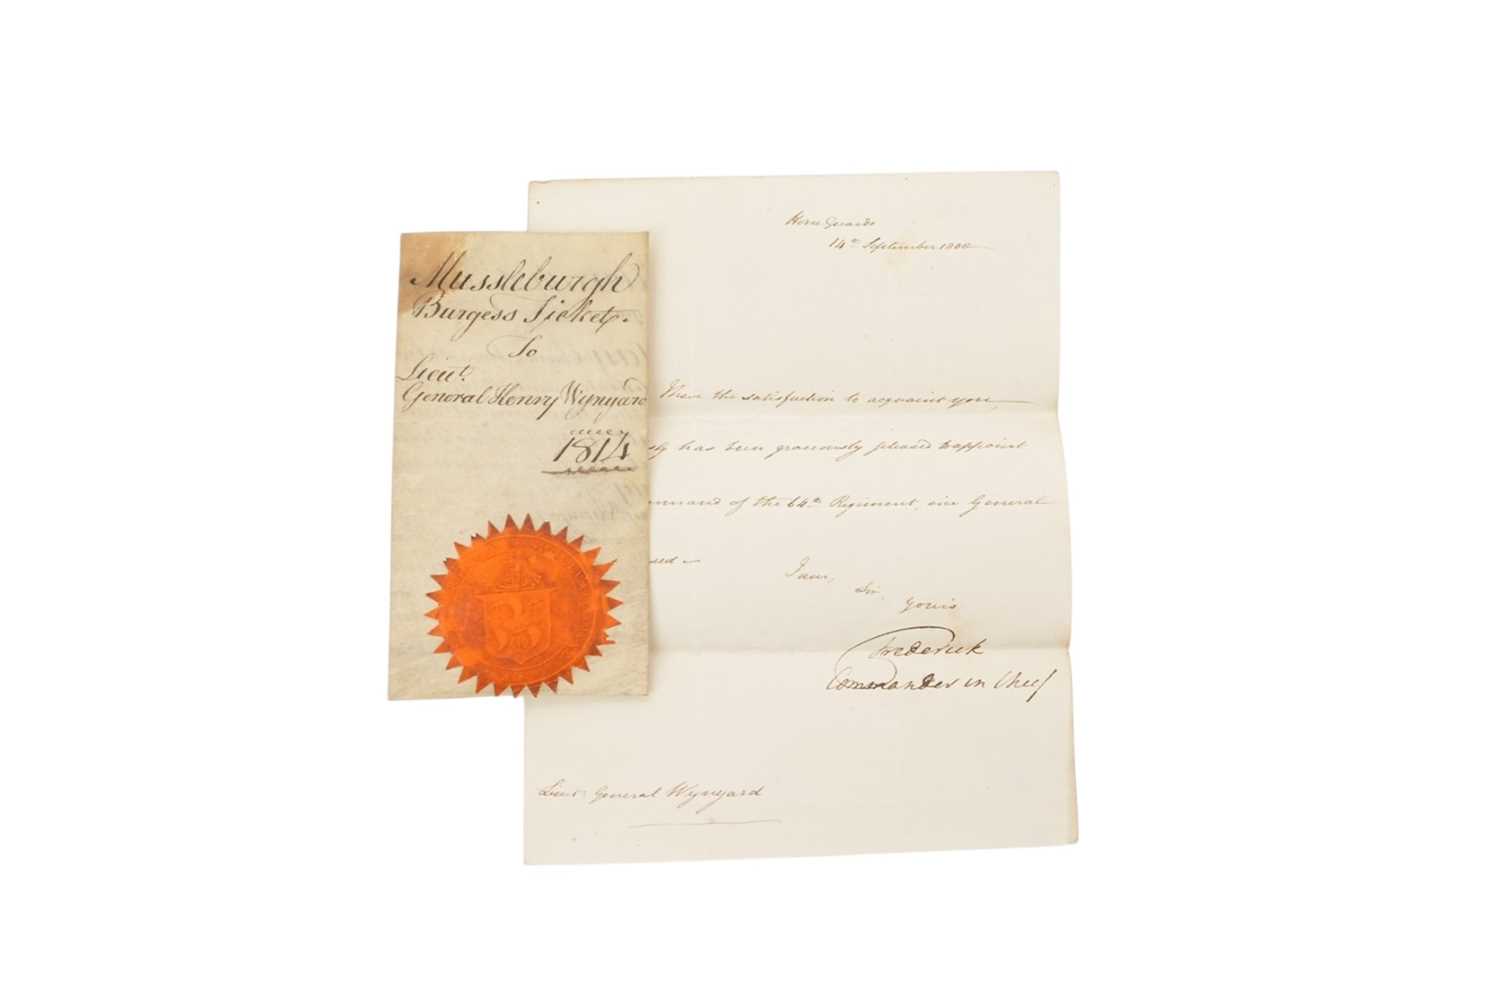 Mussleburgh
Burgess Ticket.
To
Lieut.
General Henry Wynyard
1814
Horse Guards
14th September 1808
I have the satisfaction to acquaint you,
has been graciously pleased to appoint
of the 64th Regiment, vice General
I am,
Sir,
Yours
Frederick
Commander in Chief
Lieut: General Wynyard